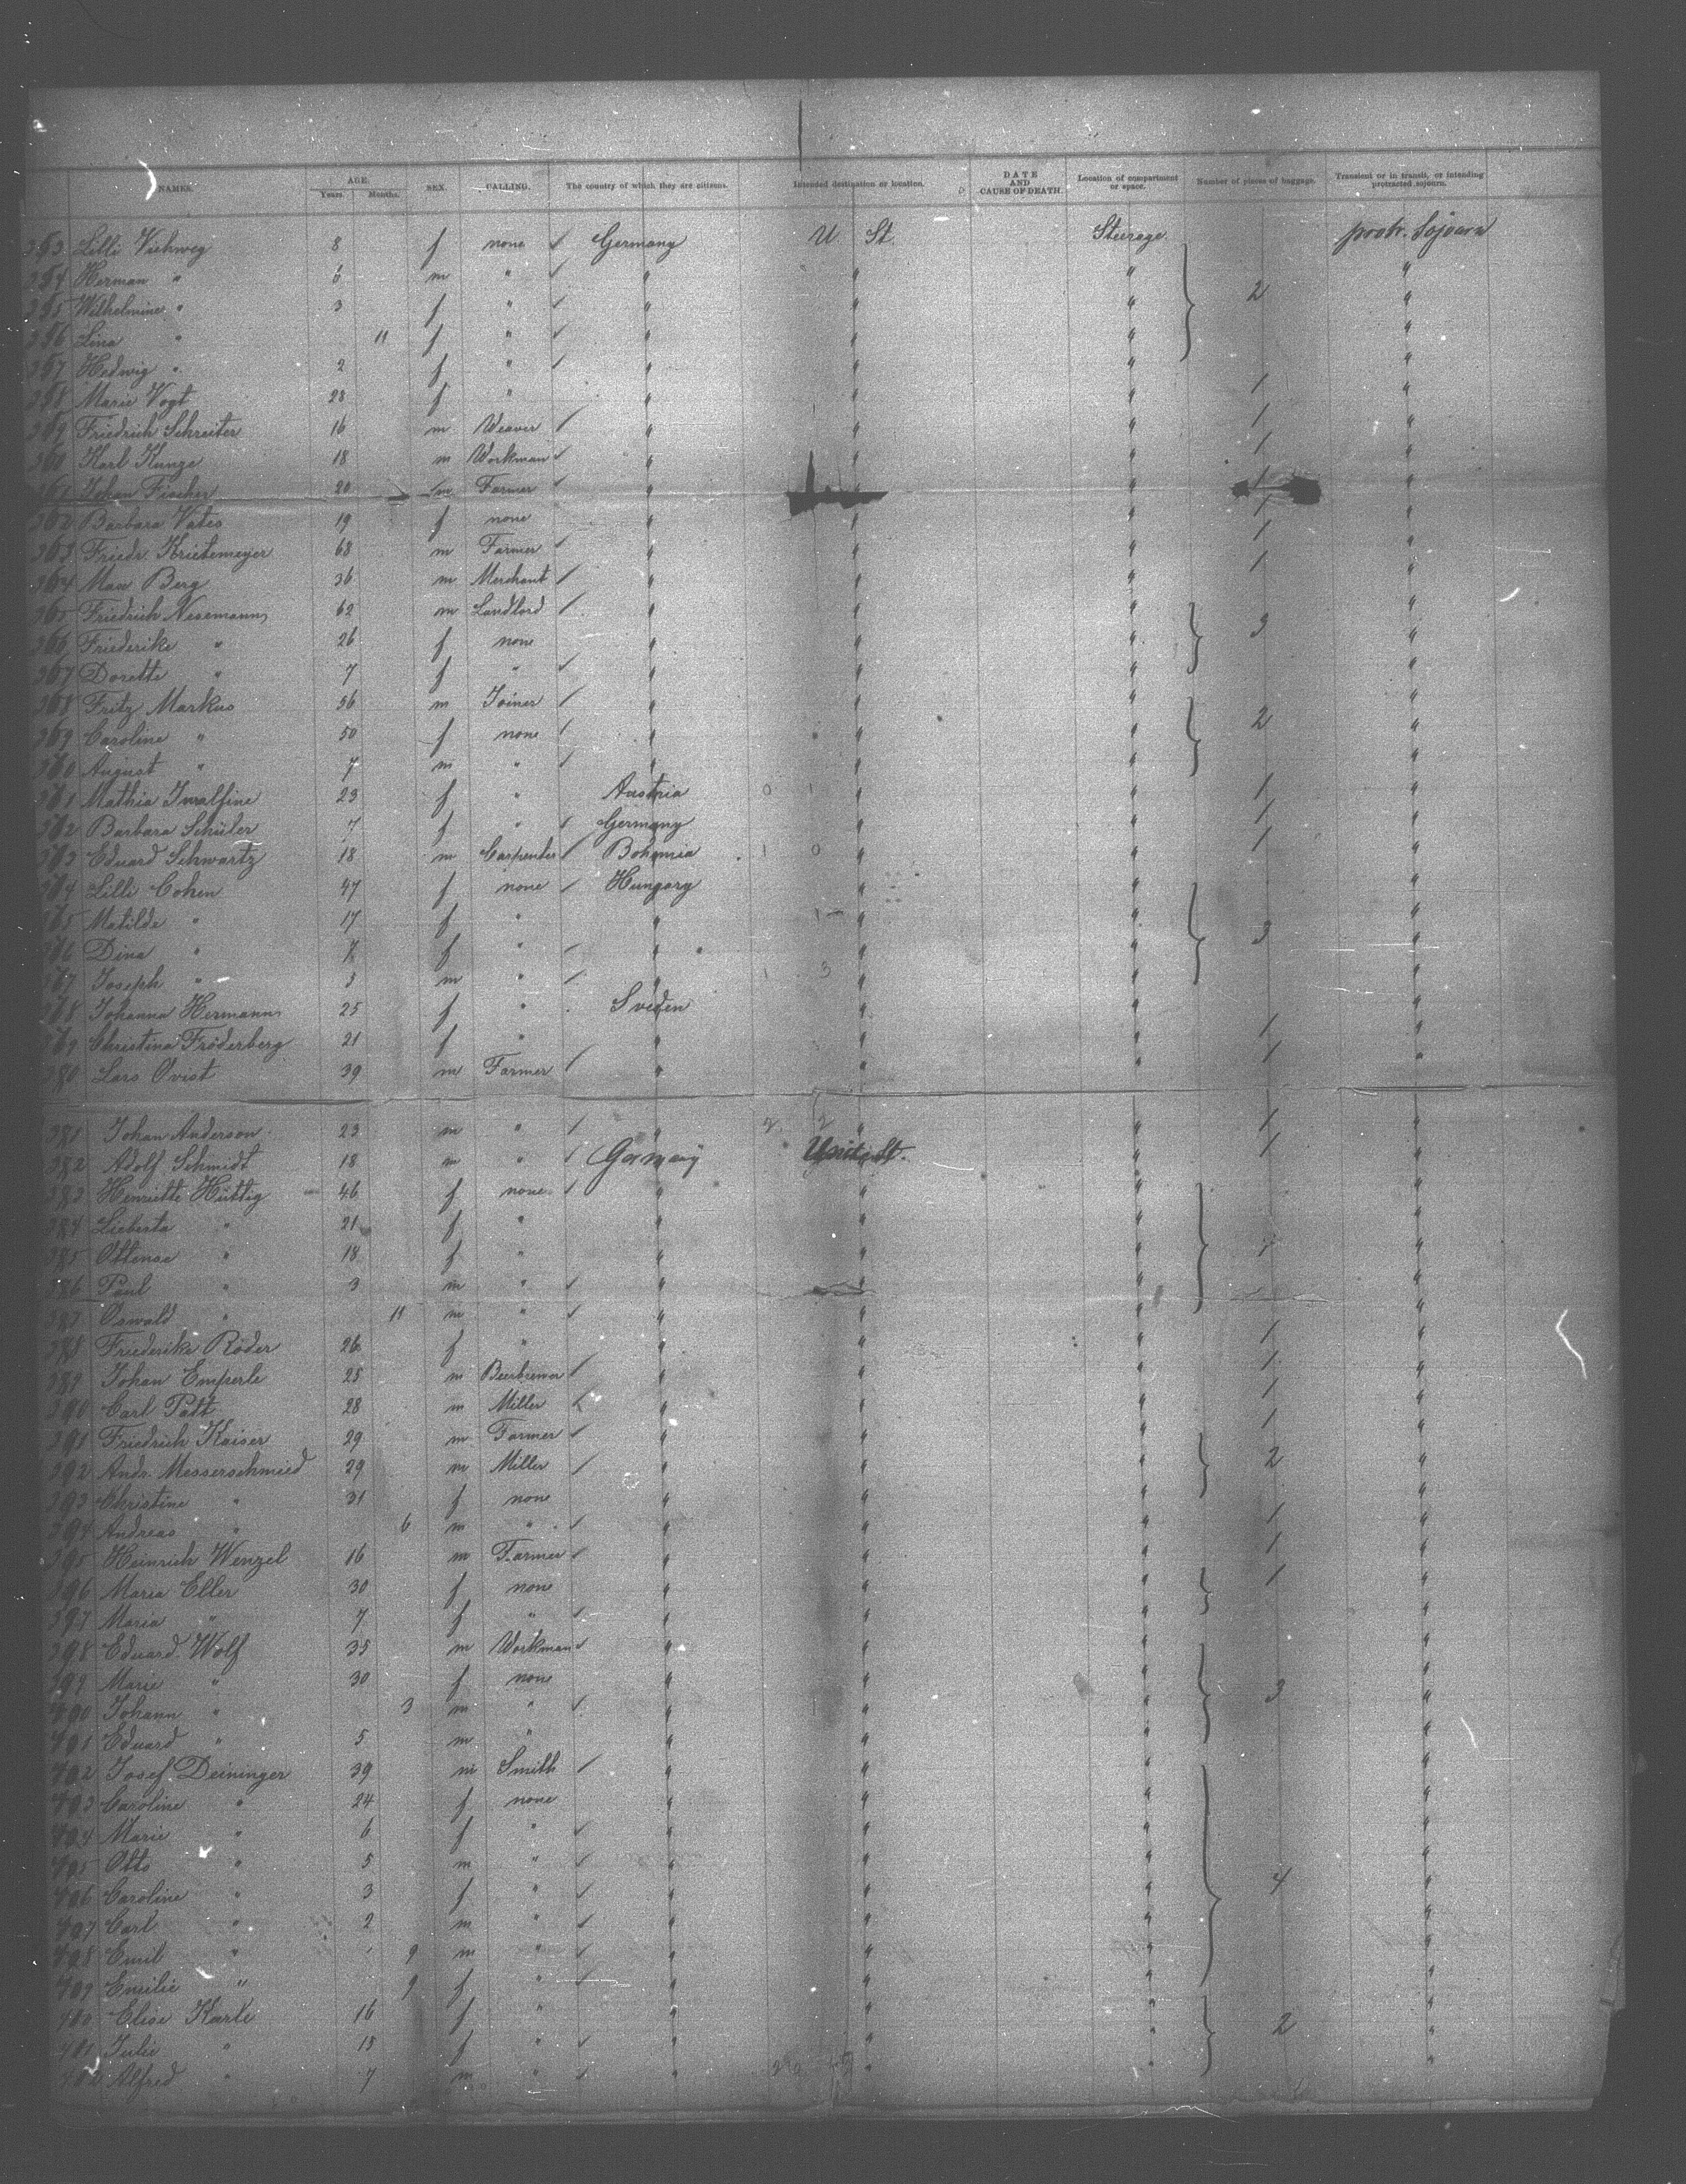 NAMES. AGE. Years. Months. SEX. CALLING. The country of which they are citizens. Intended destination or location. DATE AND CAUSE OF DEATH. Location of compartment or space. Number of pieces of baggage. Transient or in transit, or intending protracted sojourn.
353 Lilli Viehweg 8 f none Germany U St. Steerage protr. Sojourn
354 Herman " 6 m " " " " 2 "
355 Wilhelmine " 3 f " " " " "
356 Lina " 11 f " " " " "
357 Hedwig " 2 f " " " " "
358 Marie Vogt 28 f " " " " 1 "
359 Friedrich Schreiter 16 m Weaver " " " 1 "
360 Karl Kunze 18 m Workman " " " 1 "
361 Johan Fischer 20 m Farmer " " " 1 "
362 Barbara Vates 19 f none " " " 1 "
363 Friedr. Krietemeyer 68 m Farmer " " " 1 "
364 Max Berg 36 m Merchant " " " 1 "
365 Friedrich Nesemann 62 m Landlord " " " "
366 Friederike " 26 f none " " " 3 "
367 Dorette " 7 f " " " " "
368 Fritz Markus 56 m Joiner " " " "
369 Caroline " 50 f none " " " 2 "
360 August " 7 m " " " " "
361 Mathia 23 f " Austria 0 1 " " 1 "
362 Barbara Schüler 7 f " Germany " " 1 "
363 Eduard Schwartz 18 m Carpenter Bohemia 1 0 " " 1 "
364 Lilli Cohen 47 f none Hungary " " "
365 Matilde " 17 f " " 1 " " "
366 Dina " f " " " " 3 "
367 Joseph " 3 m " " 1 3 " " "
368 Johanna Hermann 25 f " Sveden " " "
369 Christina Fröderberg 21 f " " " " 1 "
380 Lars Qvist 39 m Farmer " " " 1 "
381 Johan Anderson 23 m " " 2 2 " " 1 "
382 Adolf Schmidt 18 m " Germany Unit. St. " 1 "
383 Henriette Hüttig 46 f none " " " "
384 Lieberta " 21 f " " " " "
385 Ottense " 18 f " " " " 1 "
386 Paul " 3 m " " " " "
387 Oswald " 11 m " " " " "
388 Friederike Röder 26 f " " " " 1 "
389 Johan Emperle 25 m Beerbrewer " " " 1 "
390 Carl Patt 28 m Miller " " " 1 "
391 Friedrich Kaiser 29 m Farmer " " " 1 "
392 Andr. Messerschmied 29 m Miller " " " 2 "
393 Christine " 31 f none " " " "
394 Andreas " 6 m " " " " 1 "
395 Heinrich Wenzel 16 m Farmer " " " 1 "
396 Maria Eller 30 f none " " " 1 "
397 Maria " 7 f " " " " "
398 Eduard Wolf 35 m Workman " " " "
399 Marie " 30 f none " " " 3 "
400 Johann " 3 m " " " " "
401 Eduard " 5 m " " " " "
402 Josef Deininger 39 m Smith " " " "
403 Caroline " 24 f none " " " "
404 Marie " 6 f " " " " "
405 Otto " 5 m " " " " "
406 Caroline " 3 f " " " " 4 "
407 Carl " 2 m " " " " "
408 Emil " 9 m " " " " "
409 Emilie " 9 f " " " " "
400 Elise Karle 16 f " " " " 2 "
401 Julie " 15 f " " " " "
402 Alfred " 7 m " " " " "